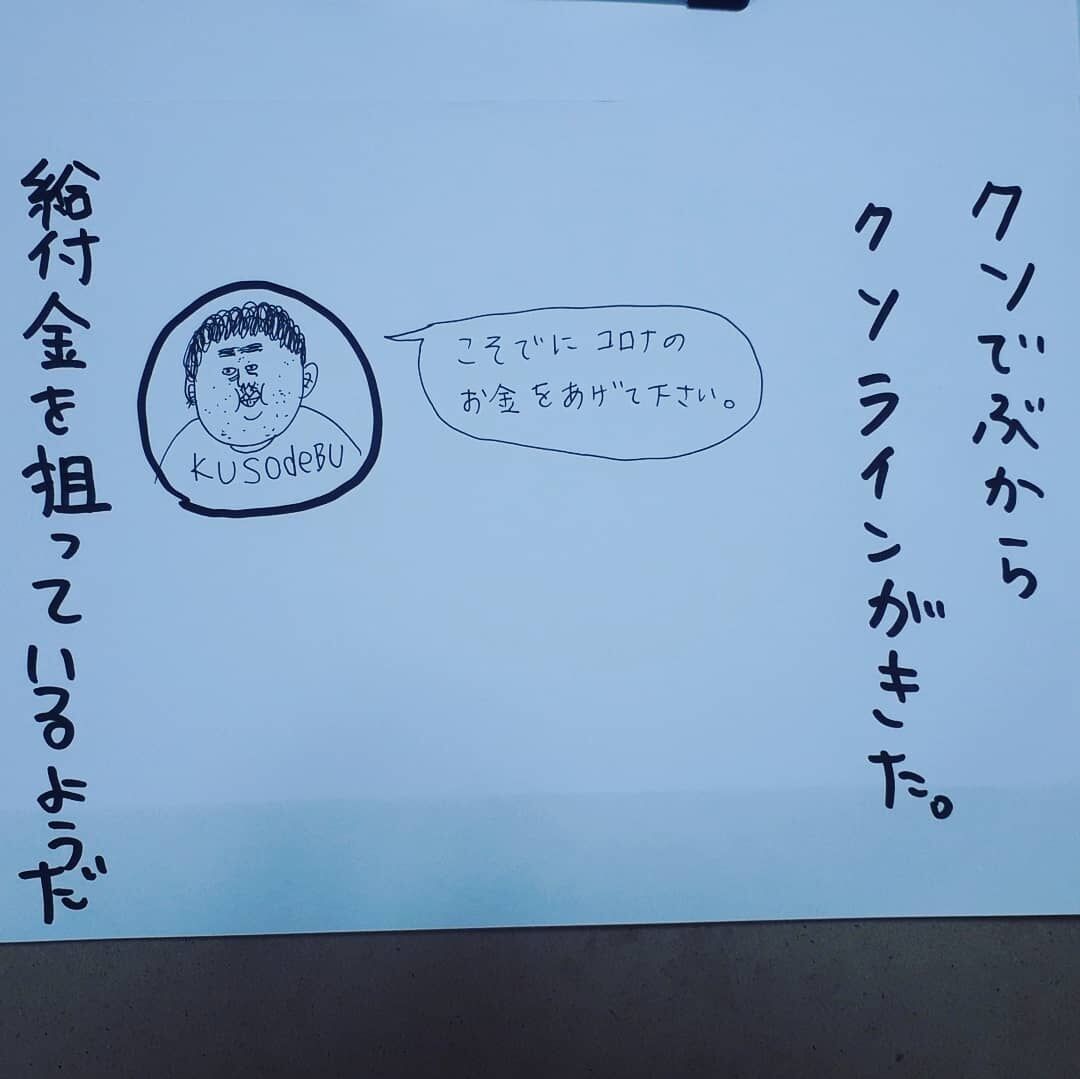 クソでぶから
クソラインがきた。
こそでに コロナの
お金をあげて下さい。
KUSODEBU
給付金を狙っているようだ